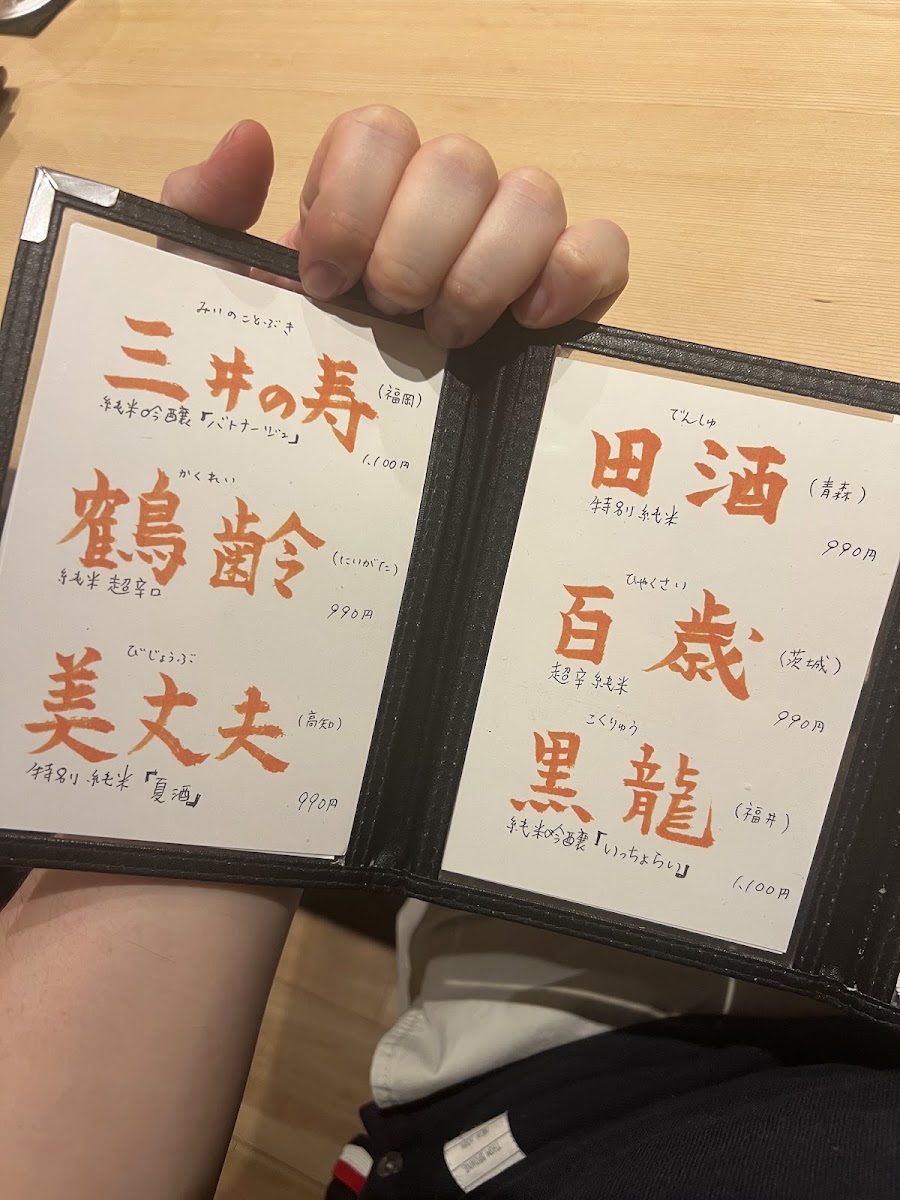 みいのことぶき
三井の寿 (福岡)
純米吟醸「バトナージュ」
1,100円
かくれい
鶴齢 (にいがた)
純米 超辛口
990円
びじょうぶ
美丈夫 (高知)
特別 純米 「夏酒」
990円
でんしゅ
田酒 (青森)
特別 純米
990円
ひゃくさい
百歳 (茨城)
超辛 純米
990円
こくりゅう
黒龍 (福井)
純米吟醸「いっちょらい」
1,100円